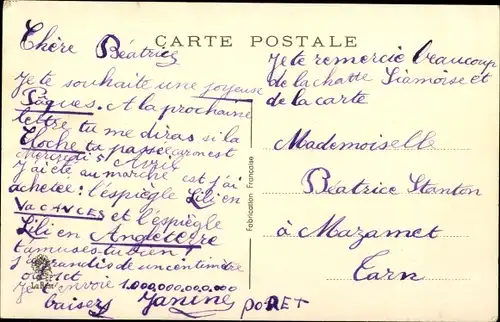 CARTE POSTALE
Chère Béatrice
Je te souhaite une joyeuse
Pâques. A la prochaine
lettre tu me diras si la
Cloche ta passée carmest
Mercredi 5 Avril
J'ai été au marché est j'ai
achetée: l'éspiègle Lili en
VACANCES et l'éspiègle
Lili en Angleterre
t'amuses-tu bien?
J'ai grandis de un centimètre
Je t'envoie 1.000.000.000.000
baisers Janine PORET
Je te remercie beaucoup
de la chatte Siamoise et
de la carte
Mademoiselle
Béatrice Stanton
à Mazamet
Tarn
Fabrication Française